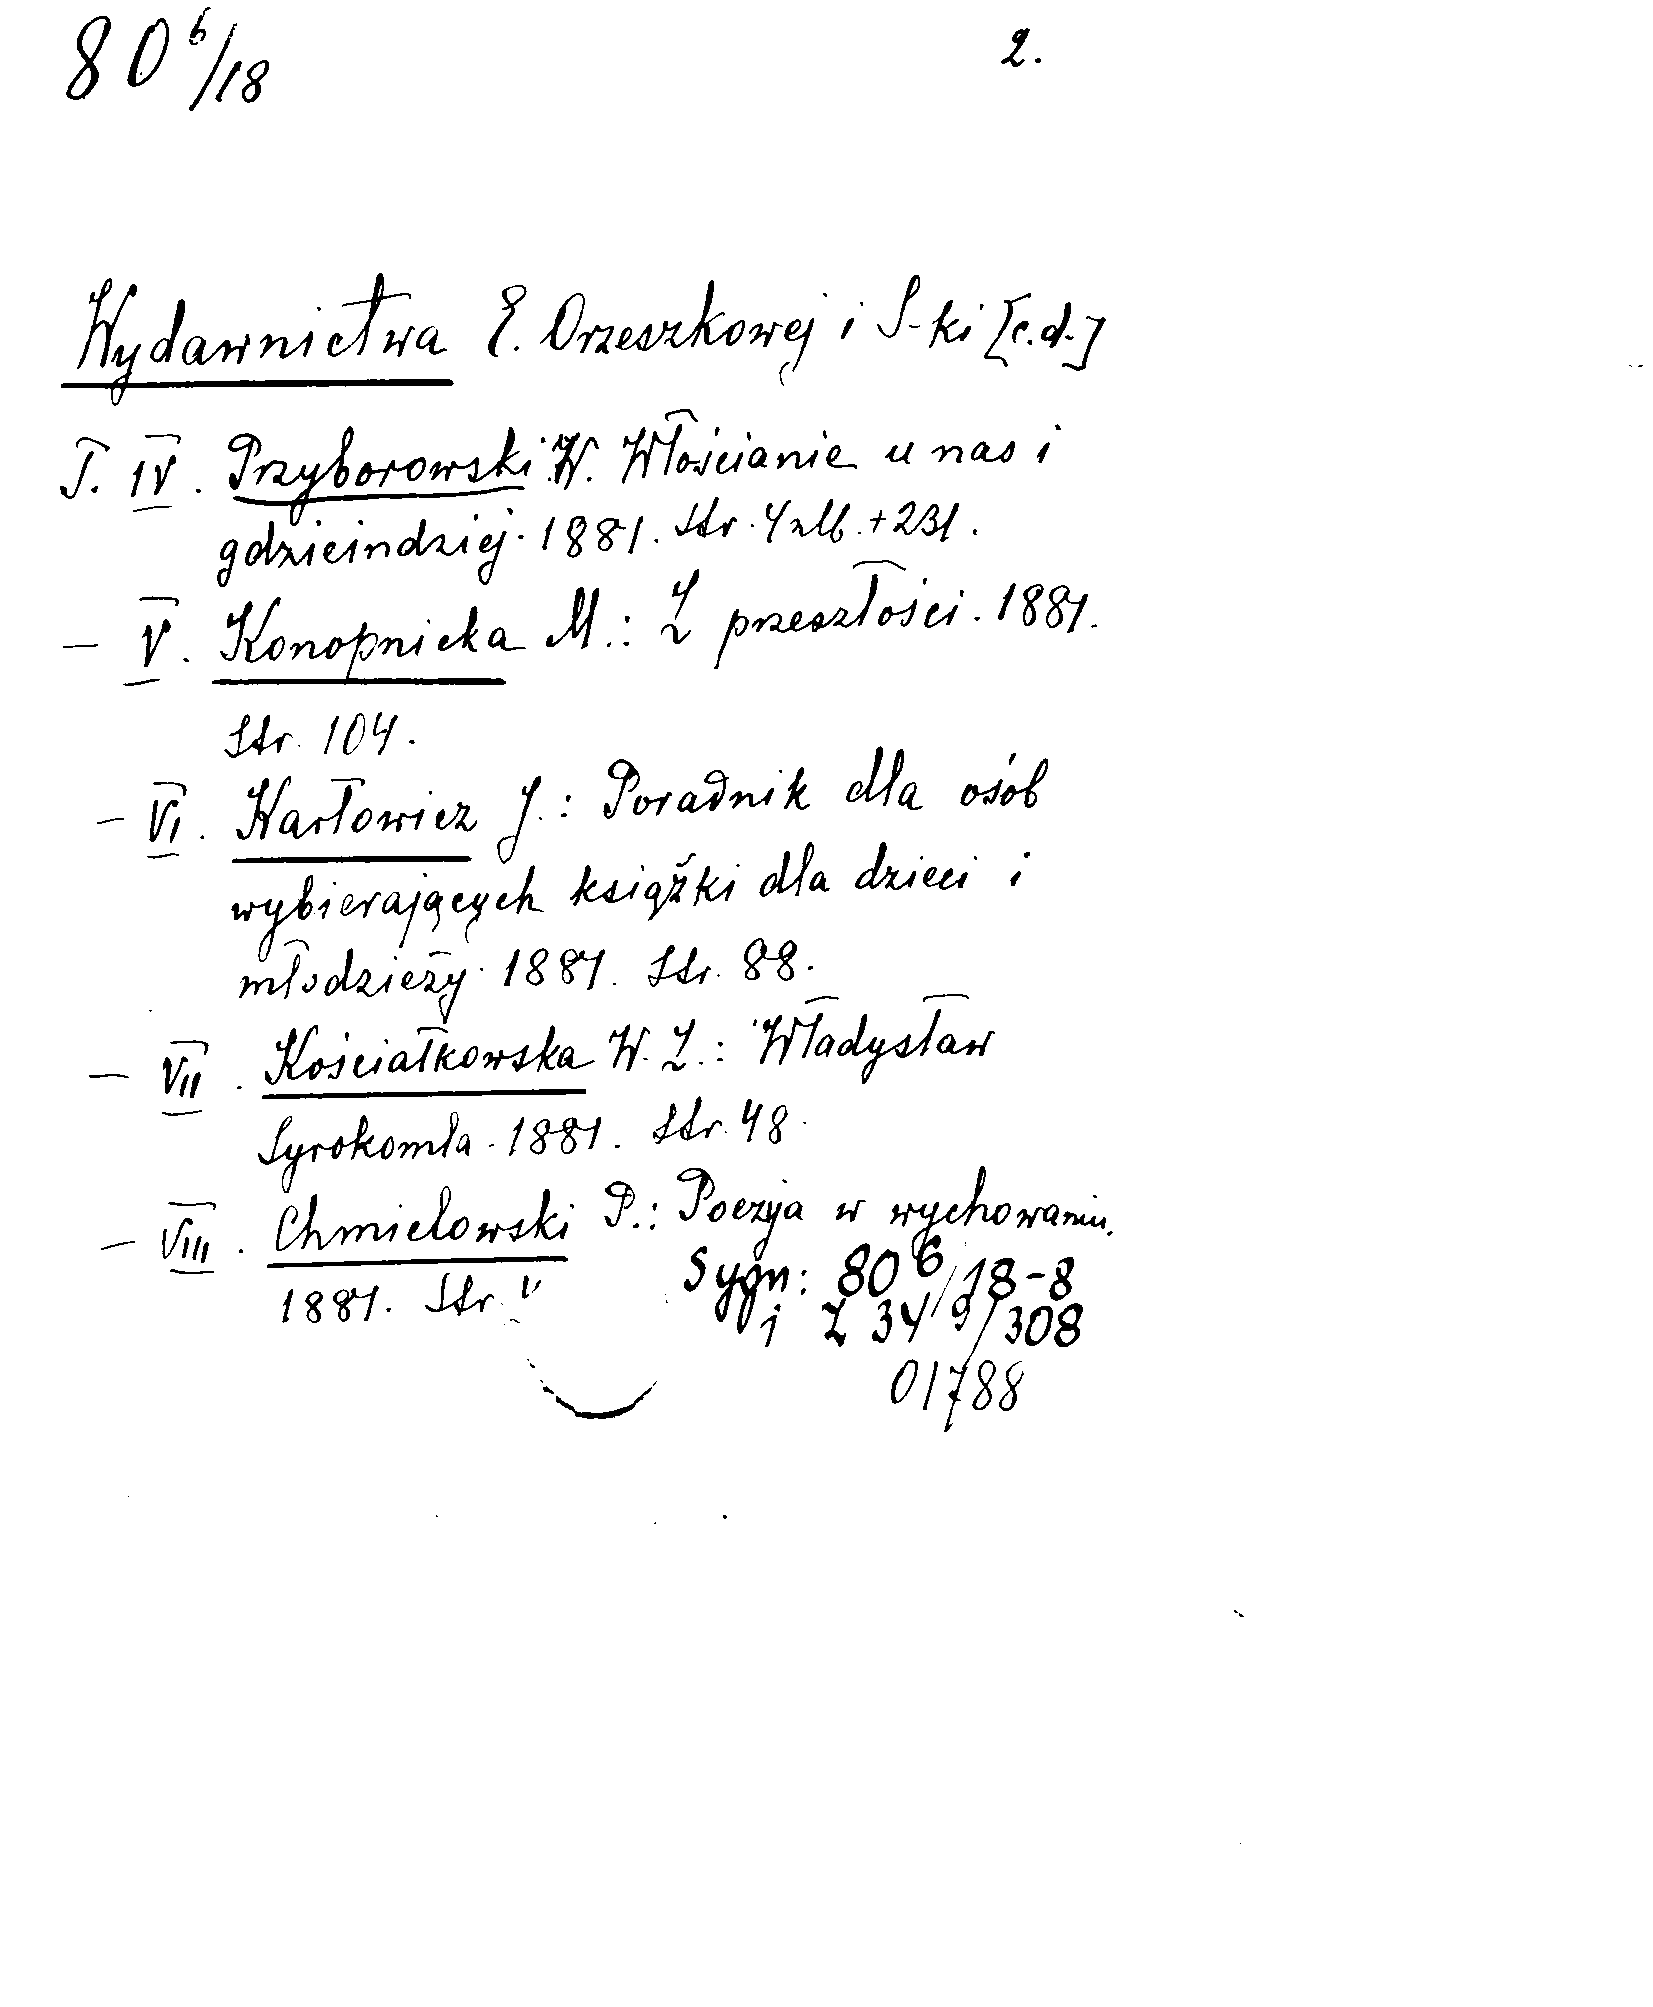 80 6/18
2.
Wydawnictwa E. Orzeszkowej i S-ki [c.d.]
T. IV. Przyborowski W. Włościanie u nas i
gdzieindziej. 1881. Str. 4 nlb. + 231.
— V. Konopnicka M.: Z przeszłości. 1881.
Str. 104.
— VI. Karłowicz J.: Poradnik dla osób
wybierających książki dla dzieci i
młodzieży. 1881. Str. 88.
— VII. Kościałkowska W. Z.: Władysław
Syrokomla. 1881. Str. 48.
— VIII. Chmielowski P.: Poezya w wychowaniu.
1881. Str.
Sygn: 80 6/18-8
i Z 34 9/308
01788